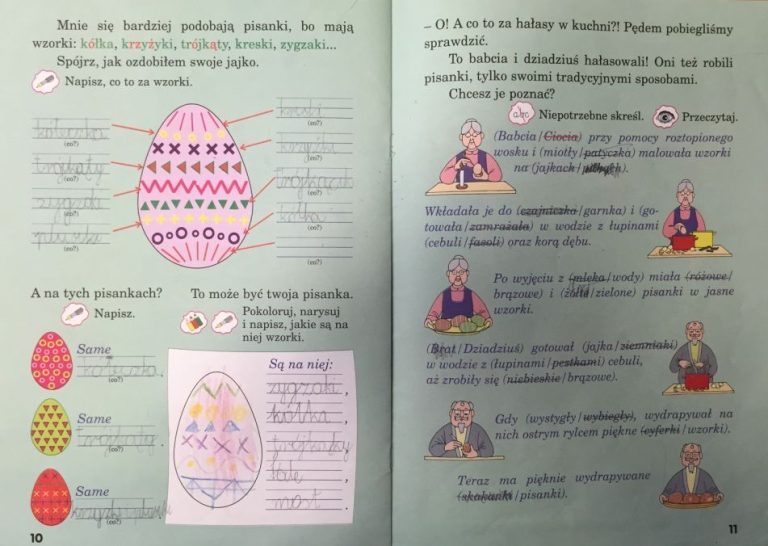 Mnie się bardziej podobają pisanki, bo mają
wzorki: kółka, krzyżyki, trójkąty, kreski, zygzaki...
Spójrz, jak ozdobiłem swoje jajko.
Napisz, co to za wzorki.
kreski
(co?)
kółeczka
(co?)
krzyżyki
(co?)
trójkąty
(co?)
(co?)
zygzaki
(co?)
kółka
(co?)
(co?)
(co?)
A na tych pisankach?
Napisz.
Same
kółeczka.
(co?)
Same
trójkąty.
(co?)
Same
krzyżyki i
(co?)
10
To może być twoja pisanka.
Pokoloruj, narysuj
i napisz, jakie są na
niej wzorki.
Są na niej:
zygzaki,
kółka,
,
fale,
most.
– O! A co to za hałasy w kuchni?! Pędem pobiegliśmy
sprawdzić.
To babcia i dziadziuś hałasowali! Oni też robili
pisanki, tylko swoimi tradycyjnymi sposobami.
Chcesz je poznać?
abc Niepotrzebne skreśl. Przeczytaj.
(Babcia/Ciocia) przy pomocy roztopionego
wosku i (miotły/patyczka) malowała wzorki
na (jajkach/
Wkładała je do (czajniczka/garnka) i (go-
towała/zamrażała) w wodzie z łupinami
(cebuli/fasoli) oraz korą dębu.
Po wyjęciu z (mleka/wody) miała (różowe/
brązowe) i (żółte/zielone) pisanki w jasne
wzorki.
(Brat/Dziadziuś) gotował (jajka/ziemniaki)
w wodzie z (łupinami/pestkami) cebuli,
aż zrobiły się (niebieskie/brązowe).
Gdy (wystygły/wybiegły), wydrapywał na
nich ostrym rylcem piękne (cyferki/wzorki).
Teraz ma pięknie wydrapywane
(skakanki/pisanki).
11